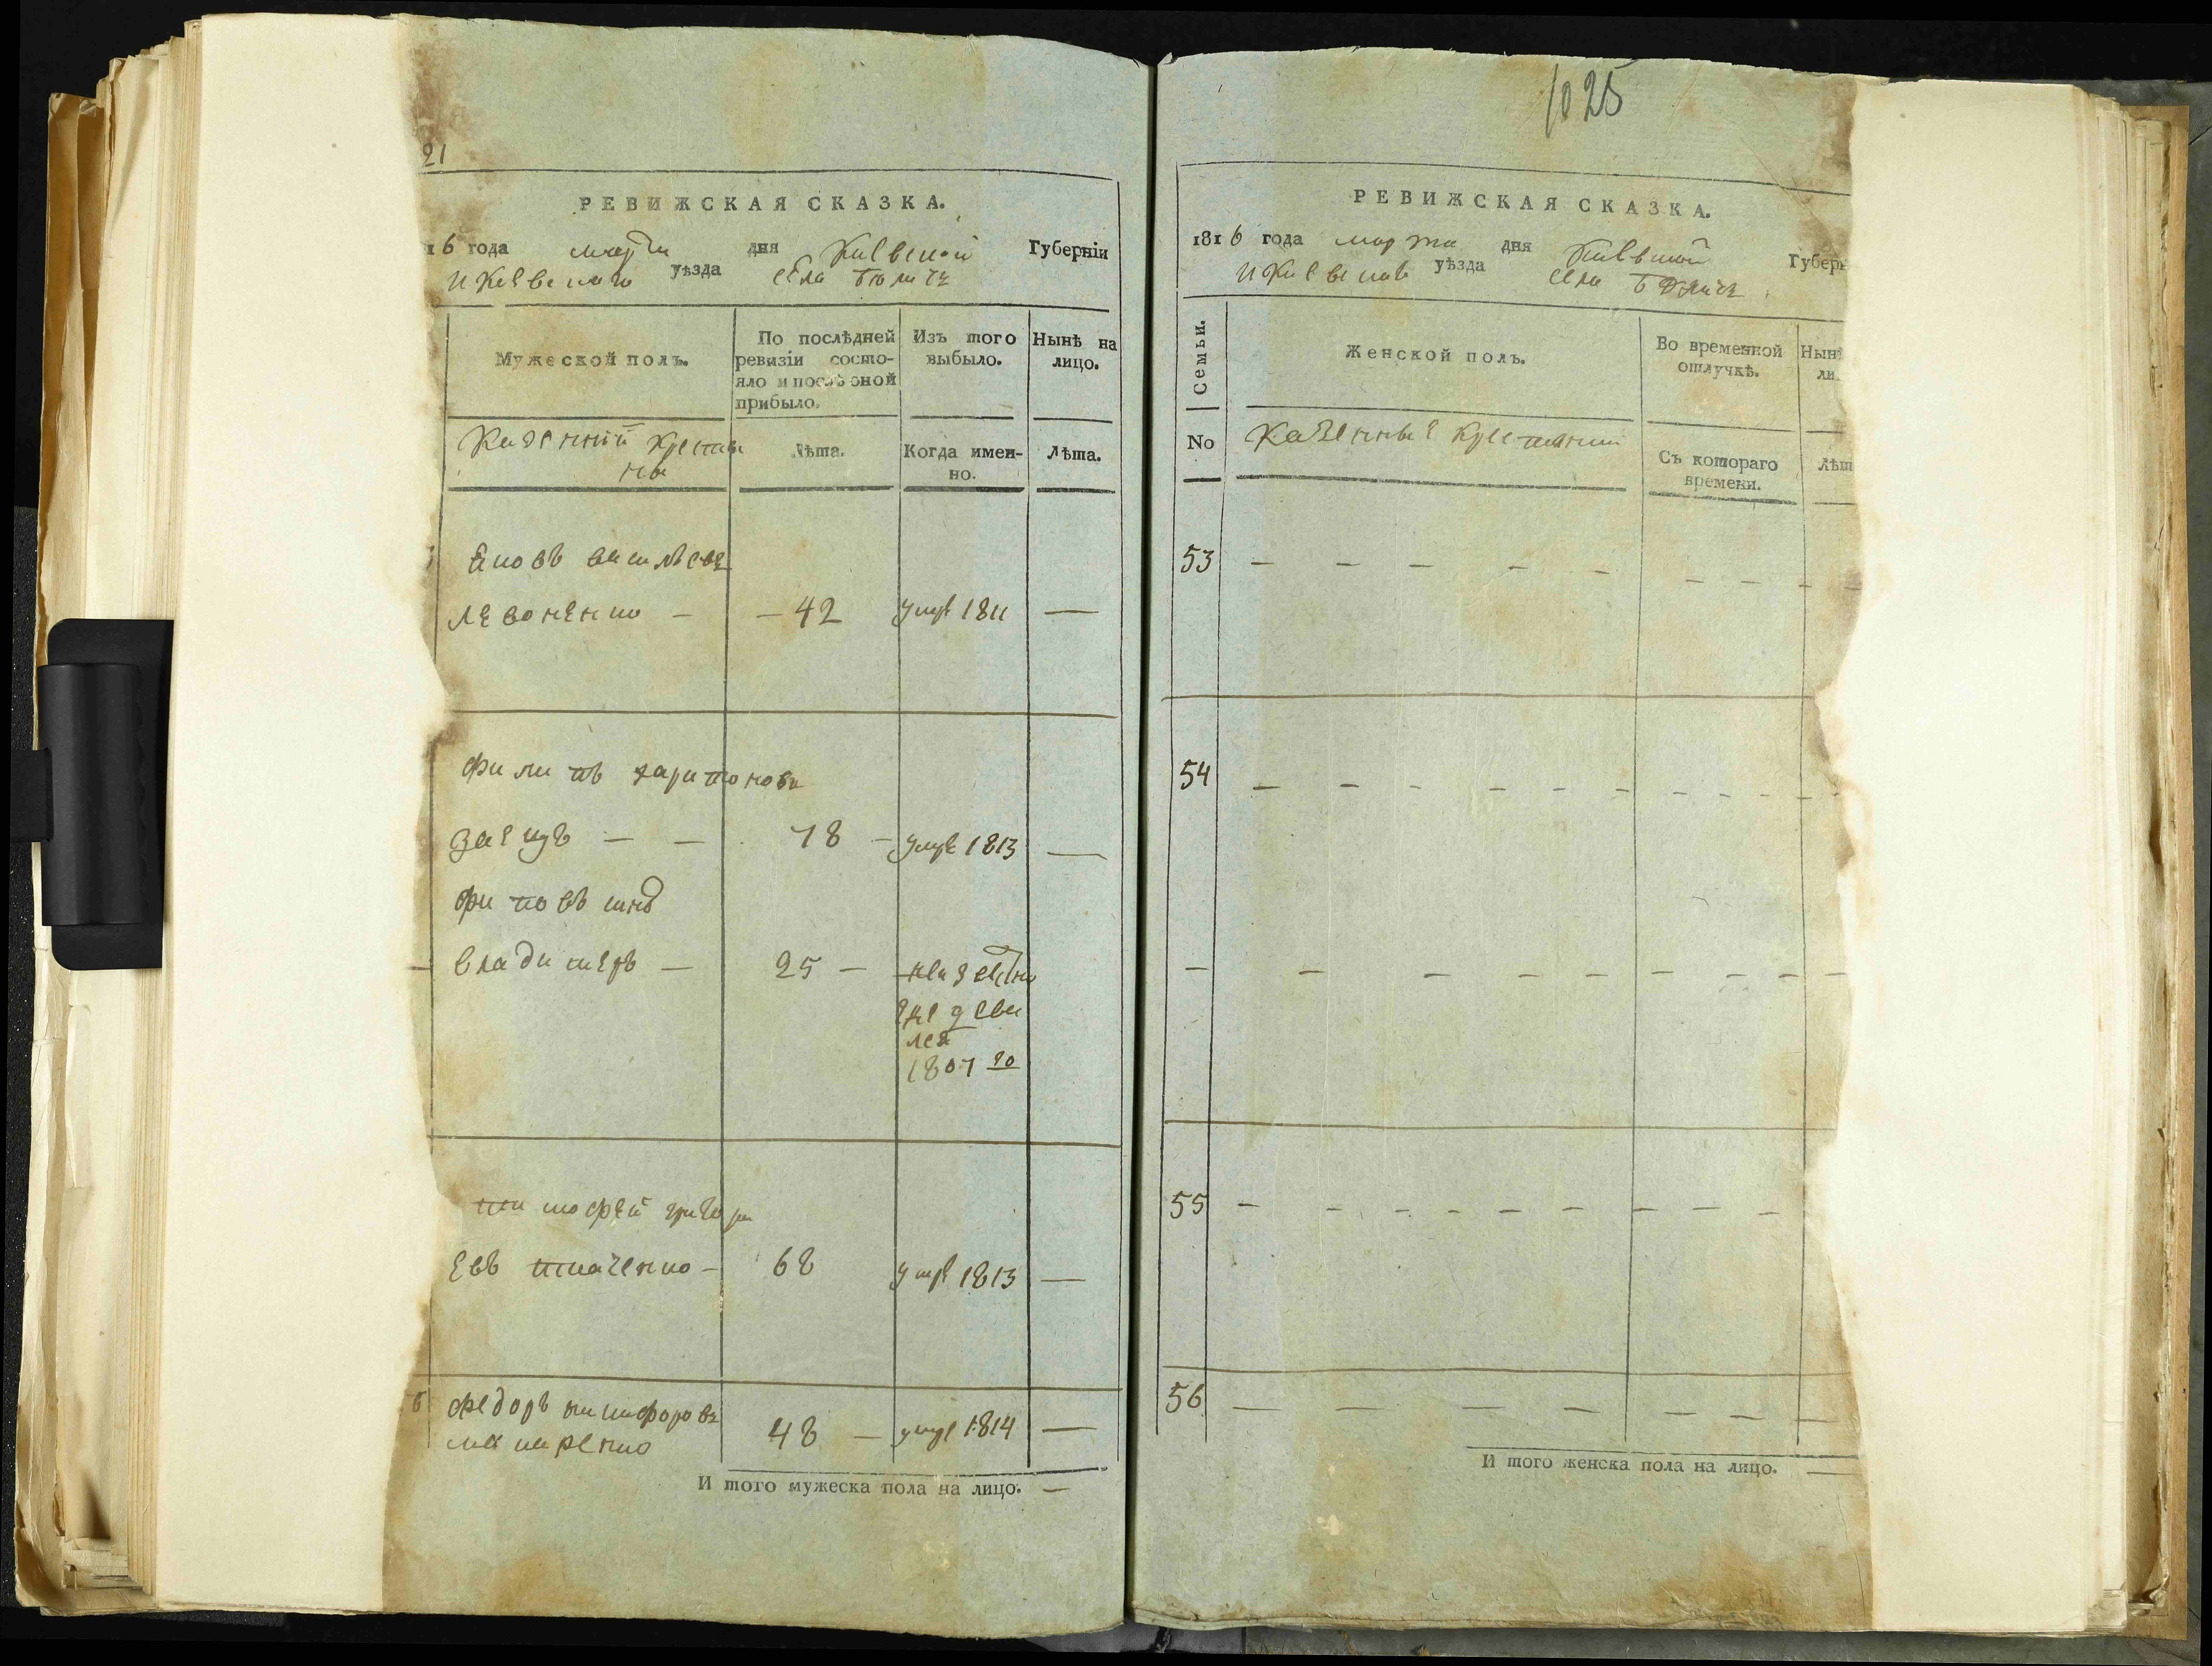 21
РЕВИЖСКАЯ СКАЗКА.
16 года марта дня Киевской Губернїи
И Киевскаго уѣзда села Бѣличъ
Мужеской полъ.
По послѣдней ревизїи состо-
яло и послѣ оной
прибыло.
Изъ того
выбыло.
Нынѣ на
лицо.
Казенныи крестья
ны
Лѣта.
Когда имен-
но.
Лѣта.
Яковъ василѣевъ
левоненко — — 42 умре 1811 —
филипъ харитоновъ
заецъ — — 78 — умре 1813 —
филиповъ синъ
владимеръ — 25 — неизвестно
где девал
ся
1807 го
тимофей григори
евъ ткаченко — 68 умре 1813 —
6 федоръ никифоровъ
макаренко 48 — умре 1814 —
И того мужеска пола на лицо. —
1025
РЕВИЖСКАЯ СКАЗКА.
1816 года марта дня Киевской Губерн
И Киевскаго уѣзда села Бѣличъ
Семьи.
Женской полъ.
Во временной
отлучкѣ.
Нынѣ
ли
No
Казенные крестьянки
Съ котораго
времени.
Лѣт
53 — — — — — — — — —
54 — — — — — — — — — —
— — — — — — — — —
55 — — — — — — — — —
56 — — — — — — —
И того женска пола на лицо. —